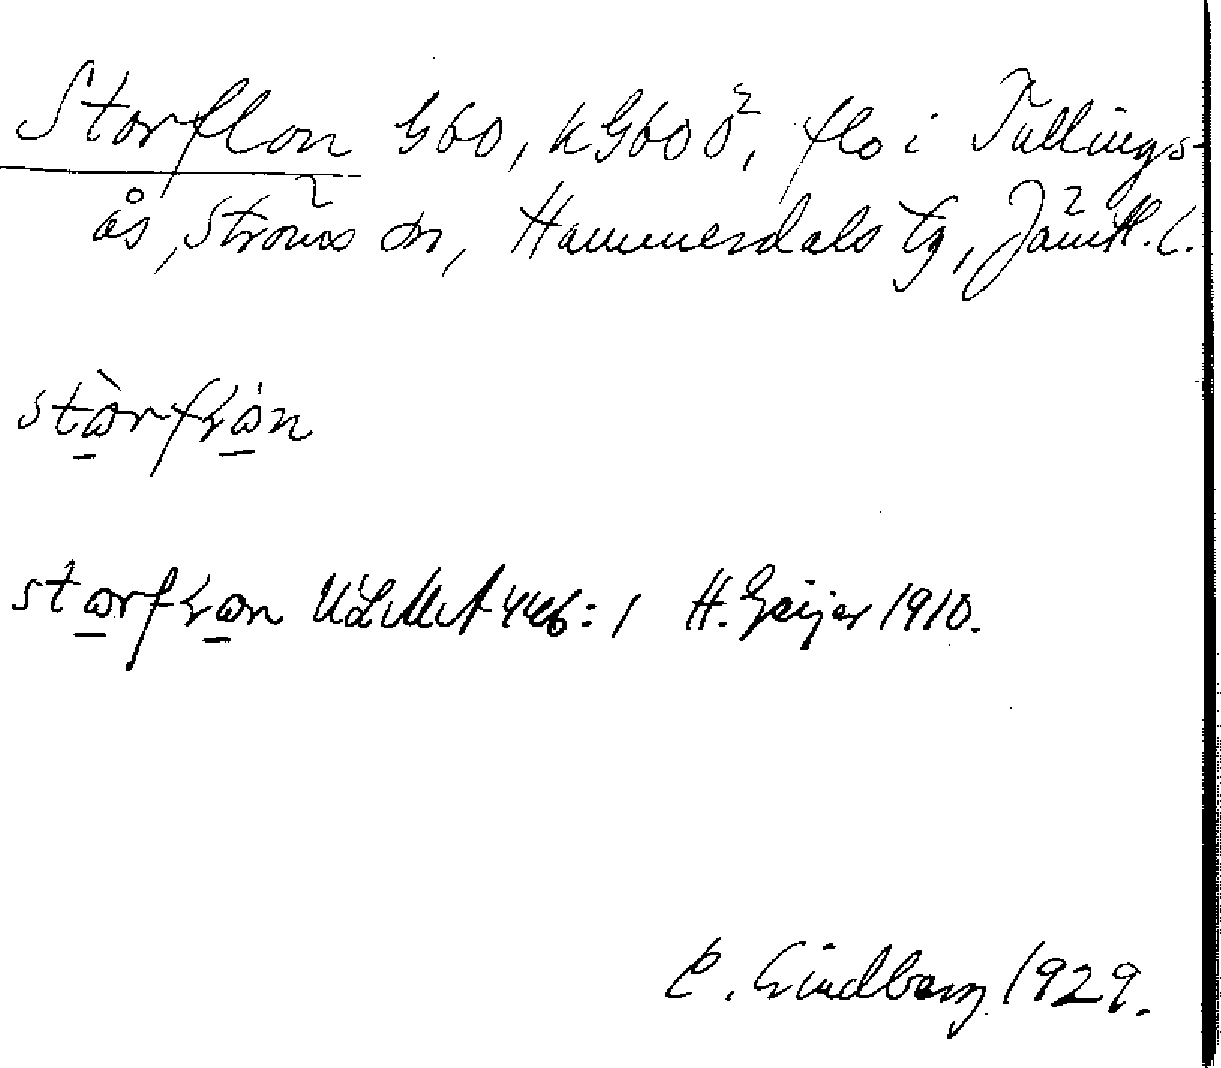 Storflon G60, kG60ö, flo i Tullings-
ås, Ströms sn, Hammerdals tg, Jämtl. l.
storflon
storflon ULMA 446:1 H. Geijer 1910.
C. Lindberg 1929.